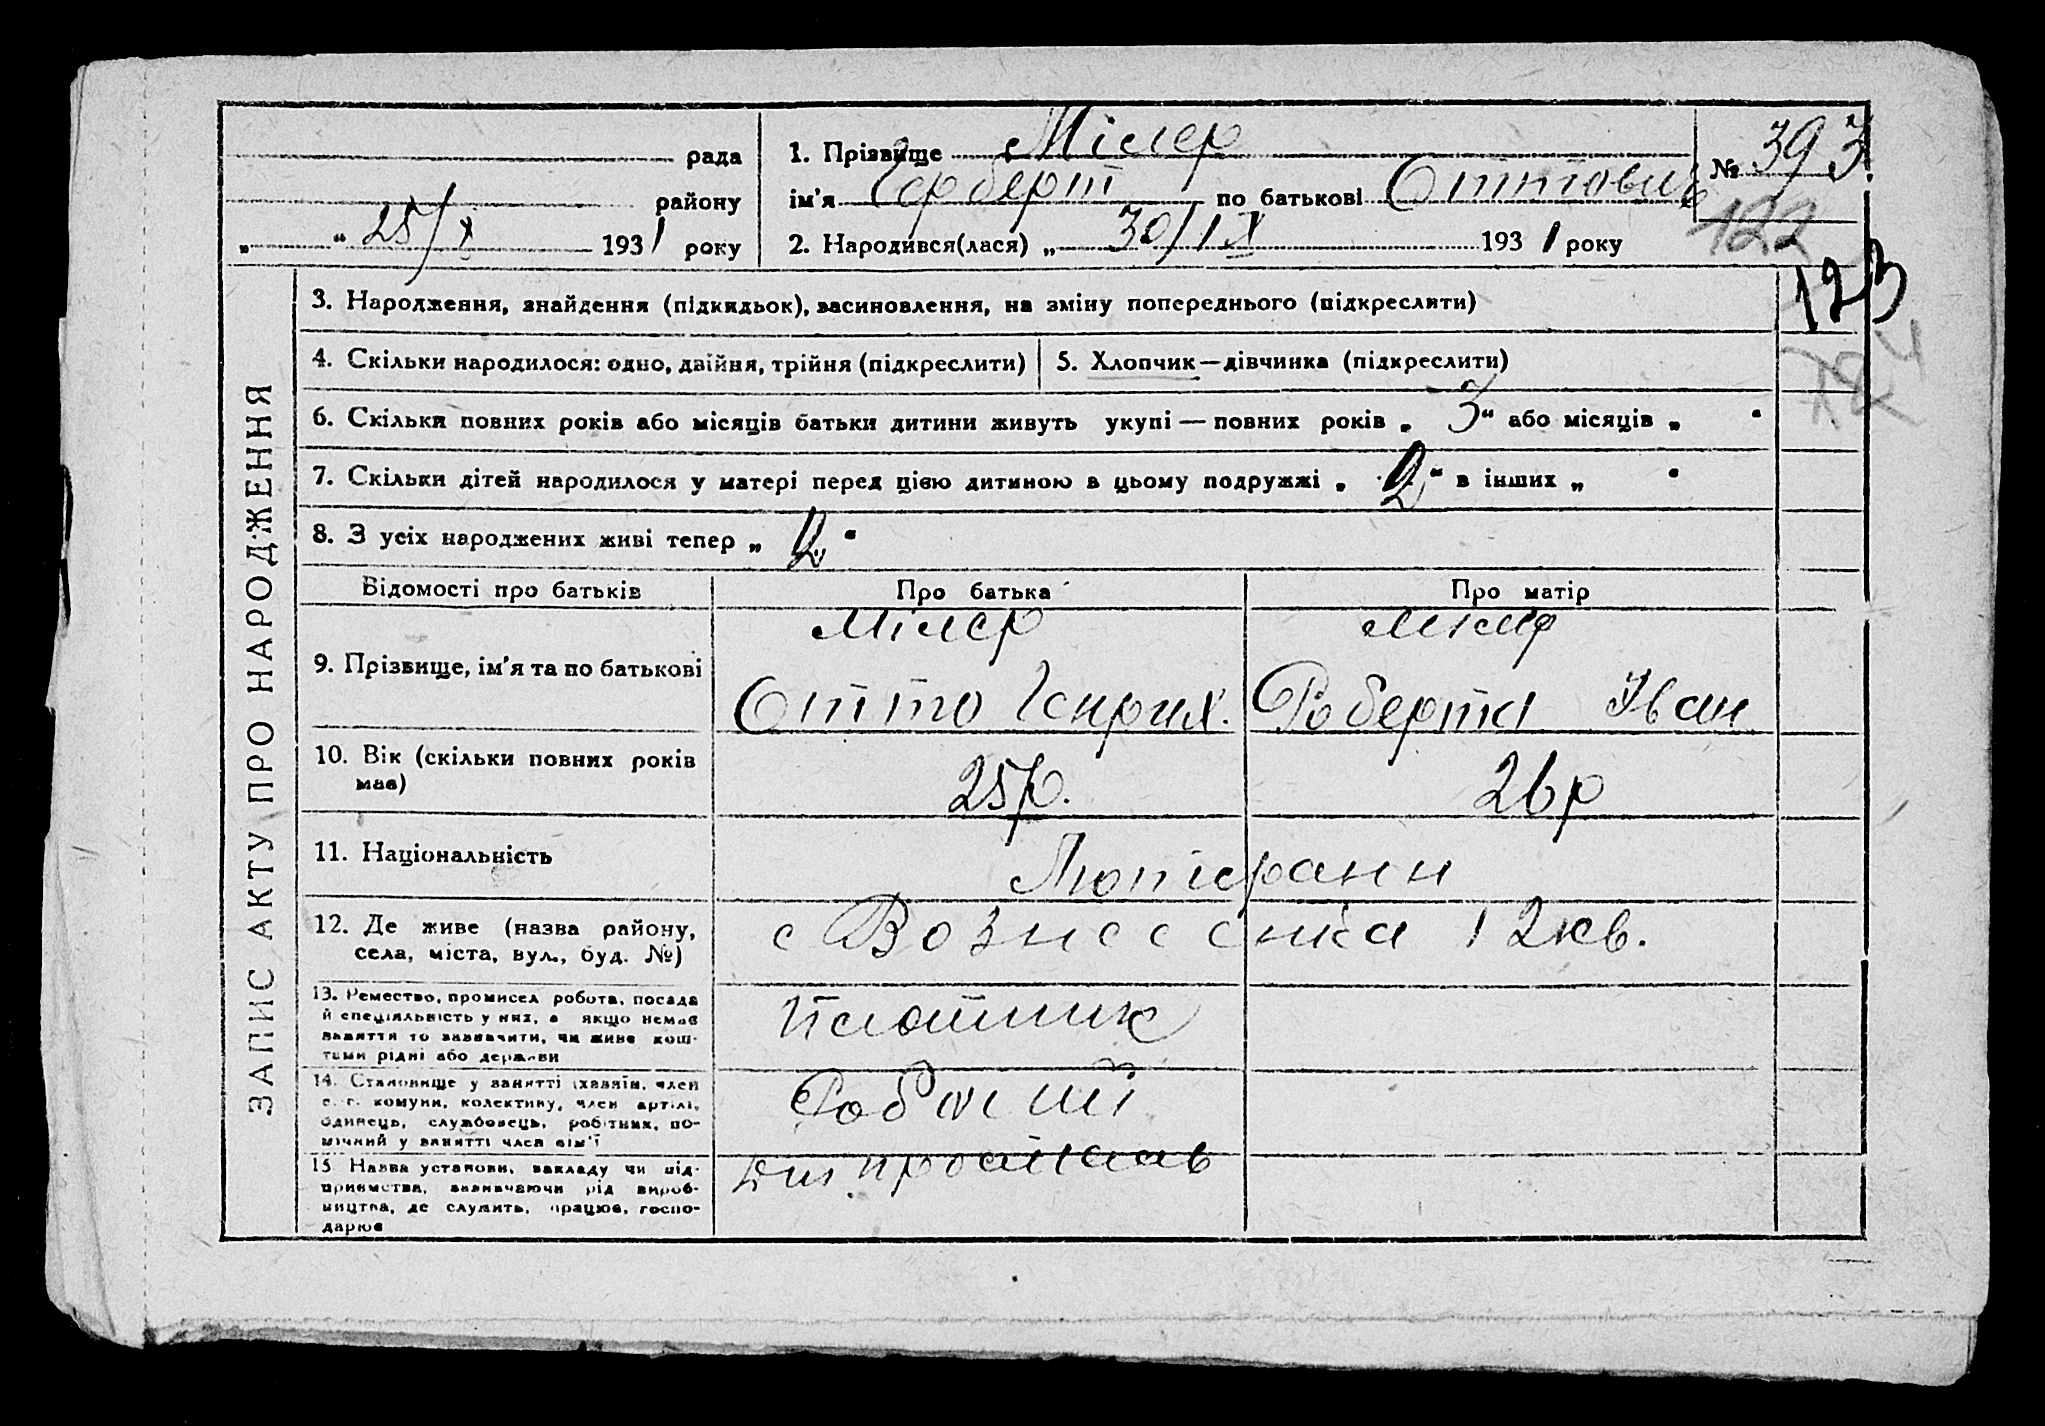 рада
району
„ “ 25/X 1931 року
1. Прізвище Мілер
ім'я Герберт по батькові Оттович
2. Народився(лася) „ 30/IX 1931 року
№ 393
122
123
ЗАПИС АКТУ ПРО НАРОДЖЕННЯ
3. Народження, знайдення (підкидьок), васиновлення, на зміну попереднього (підкреслити)
4. Скільки народилося: одно, двійня, трійня (підкреслити) 5. Хлопчик—дівчинка (підкреслити)
6. Скільки повних років або місяців батьки дитини живуть укупі — повних років „ 3 “ або місяців „ “
7. Скільки дітей народилося у матері перед цією дитиною в цьому подружжі „ 2 “ в інших „ “
8. З усіх народжених живі тепер „ 2 “
Відомості про батьків Про батька Про матір
9. Прізвище, ім'я та по батькові
Мілер Мілер
Отто Генрих. Роберта Іван
10. Вік (скільки повних років
має)
25р. 26р
11. Національність
Лютерани
12. Де живе (назва району,
села, міста, вул., буд. №)
с Вознесенка 12кв.
13. Ремество, промисел робота, посада
й спеціяльність у них, а якщо немає
заняття то зазначити, чи живе кош-
тами рідні або держави
Плотник
14. Становище у занятті (хазяїн, член
с.-г. комуни, колективу, член артілі,
одинець, службовець, робітник, по-
мічний у занятті член сім'ї
Робочий
15. Назва установи, закладу чи під-
приємства, зазначаючи рід вироб-
ництва, де служить, працює, госпо-
дарює